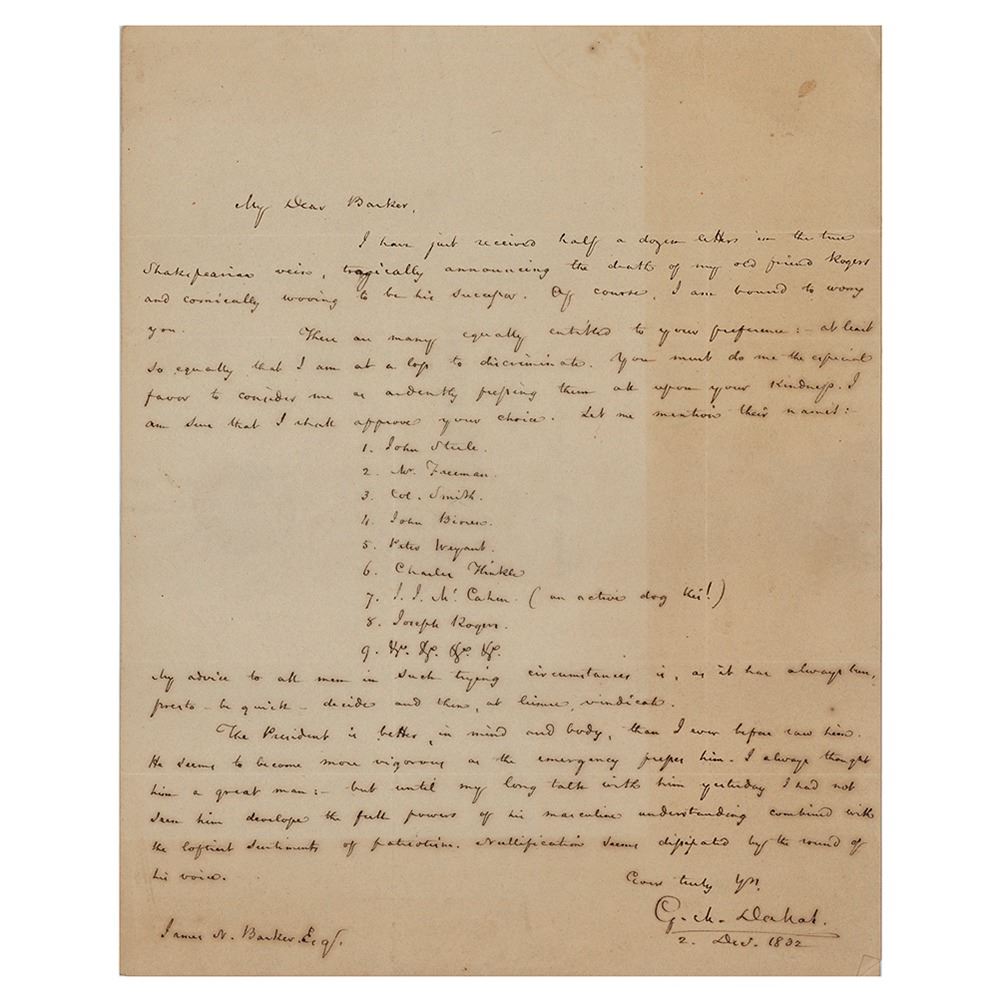 My Dear Barker,
I have just received half a dozen letters in the true
Shakespearian vein, tragically announcing the death of my old friend Rogers
and comically wooing to be his successor. Of course, I am bound to worry
you. There are many equally entitled to your preference: - at least
so equally that I am at a loss to discriminate. You must do me the especial
favor to consider me as ardently pressing them all upon your kindness. I
am sure that I shall approve your choice. Let me mention their names: -
1. John Steele.
2. Mr. Freeman.
3. Col. Smith.
4. John
5. Peter Weyant.
6. Charles Hinkle
7. J. J. Mc. Cahen. (an active dog this!)
8. Joseph Rogers.
9. &c. &c. &c. &c.
My advice to all men in such trying circumstances is, as it has always been,
presto - be quick - decide and then, at leisure, vindicate.
The President is better, in mind and body, than I ever before saw him.
He seems to become more vigorous as the emergency presses him. I always thought
him a great man: - but until my long talk with him yesterday I had not
seen him develope the full powers of his masculine understanding combined with
the loftiest sentiments of patriotism. Nullification seems dissipated by the sound of
his voice.
Ever truly Yrs.
G. M. Dallas.
2. Dec. 1832
James N. Barker, Esqr.